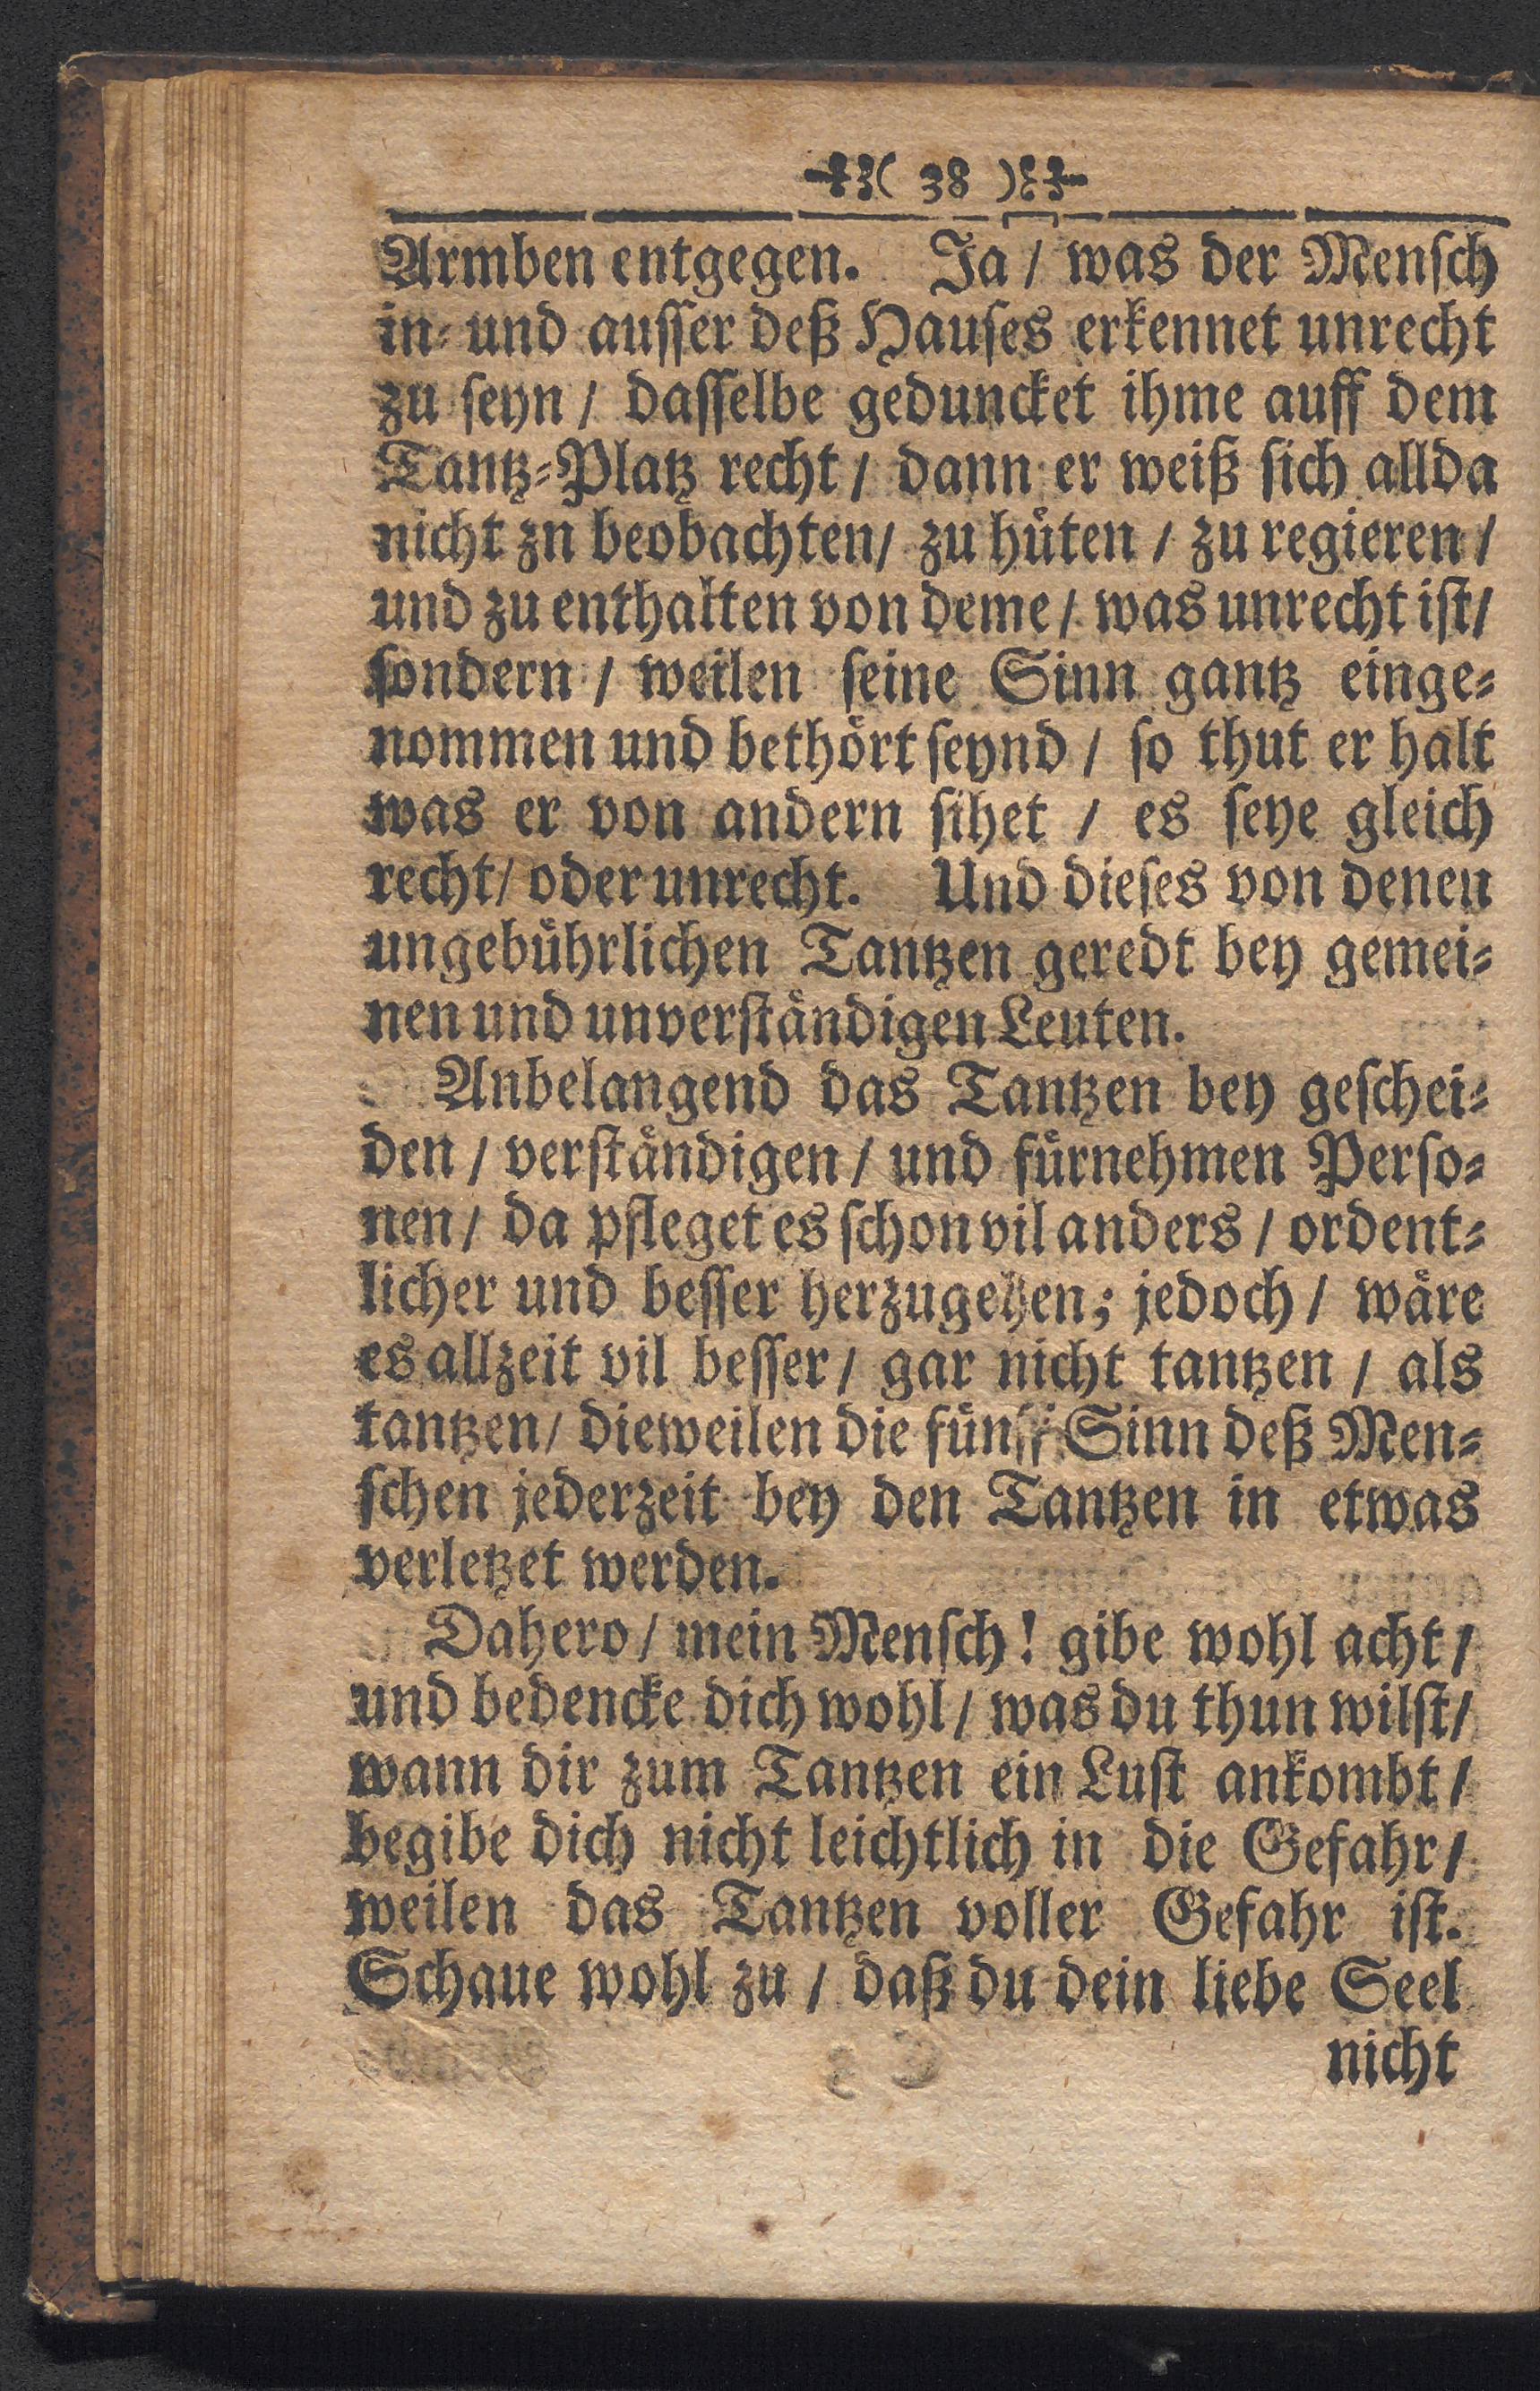 ( 38 )
Armben entgegen. Ja / was der Menſch
in- und auſſer deß Hauſes erkennet unrecht
zu ſeyn / daſſelbe geduncket ihme auff dem
Tantz-Platz recht / dann er weiß ſich allda
nicht zn beobachten/ zu huͤten / zu regieren /
und zu enthalten von deme / was unrecht iſt/
ſondern / weilen ſeine Sinn gantz einge-
nommen und bethoͤrt ſeynd / ſo thut er halt
was er von andern ſihet / es ſeye gleich
recht/ oder unrecht. Und dieſes von denen
ungebuͤhrlichen Tantzen geredt bey gemei-
nen und unverſtaͤndigen Leuten.
Anbelangend das Tantzen bey geſchei-
den / verſtaͤndigen / und fuͤrnehmen Perſo-
nen / da pfleget es ſchon vil anders / ordent-
licher und beſſer herzugehen; jedoch / waͤre
es allzeit vil beſſer / gar nicht tantzen / als
tantzen/ dieweilen die fuͤnff Sinn deß Men-
ſchen jederzeit bey den Tantzen in etwas
verletzet werden.
Dahero / mein Menſch! gibe wohl acht /
und bedencke dich wohl / was du thun wilſt/
wann dir zum Tantzen ein Luſt ankombt /
begibe dich nicht leichtlich in die Gefahr /
weilen das Tantzen voller Gefahr iſt.
Schaue wohl zu / daß du dein liebe Seel
nicht